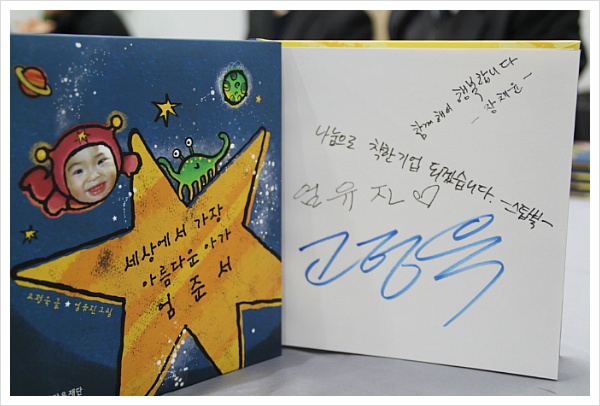 세상에서 가장
아름다운 아가
엄준서
고정욱 글 ★ 엄유진 그림
재단
함께 해서 행복합니다
- 장재윤 -
나눔으로 착한기업 되겠습니다.
엄유진
고정욱